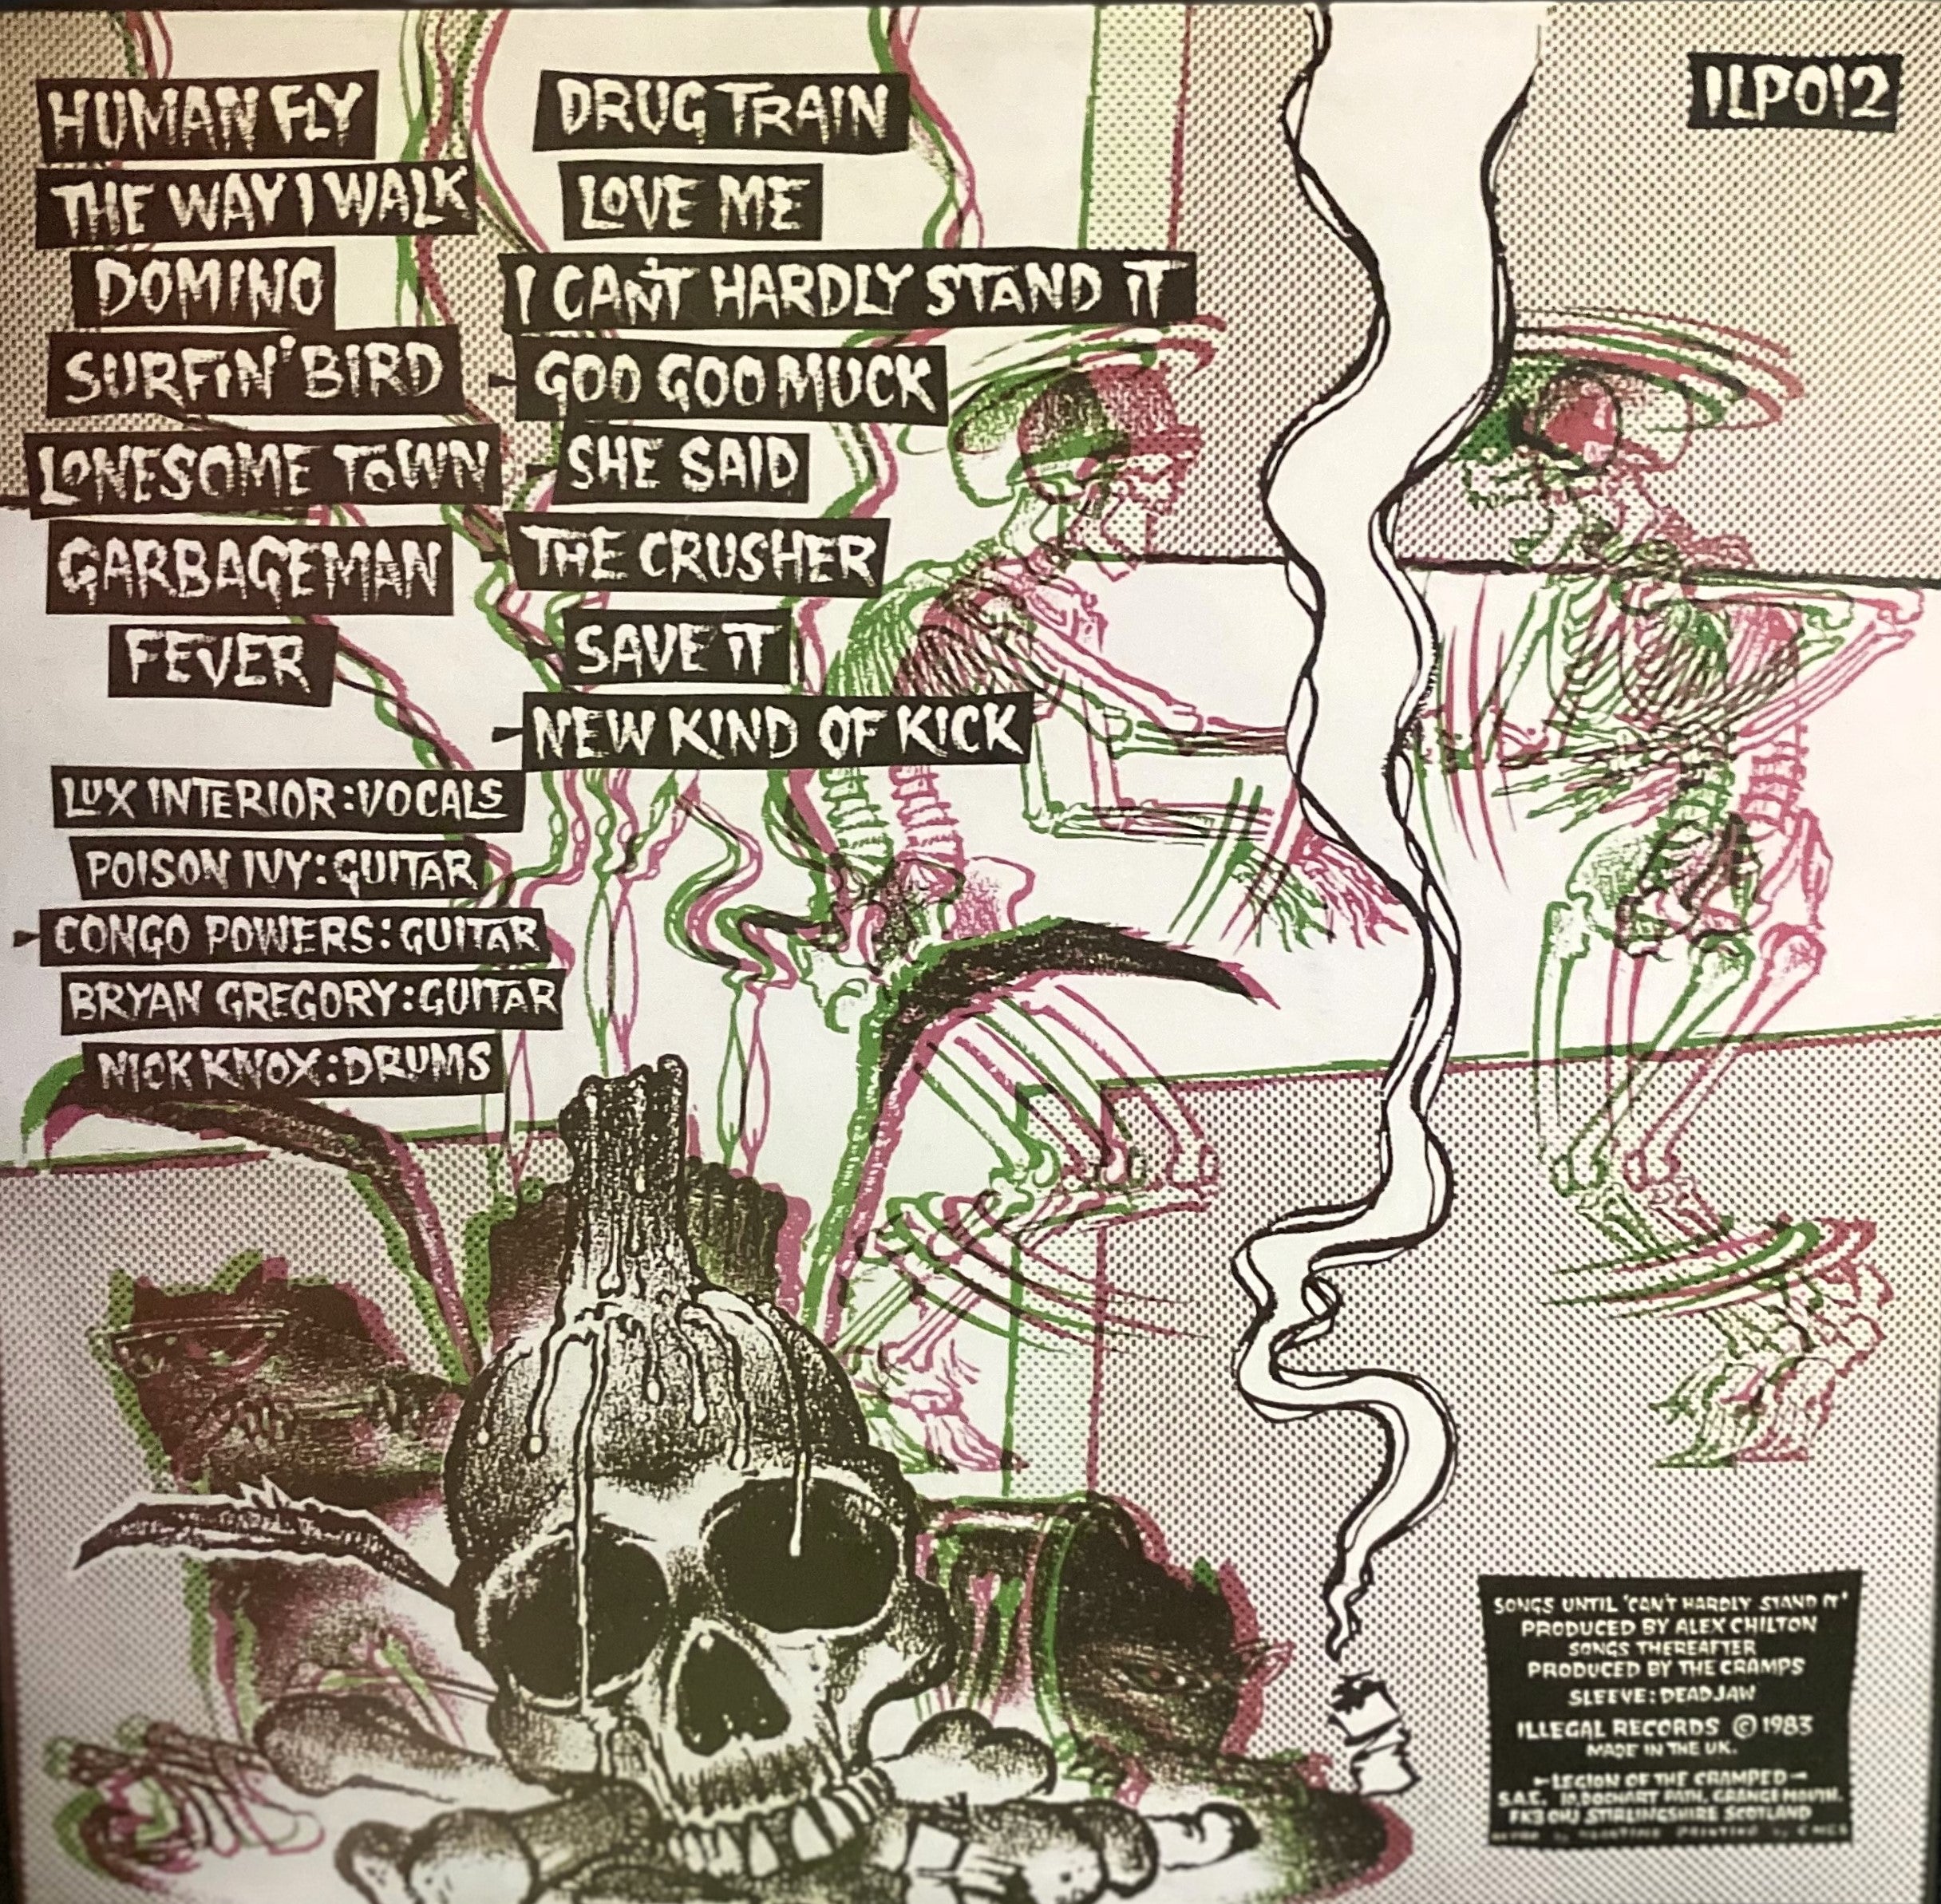 HUMAN FLY
THE WAY I WALK
DOMINO
SURFIN' BIRD
LONESOME TOWN
GARBAGEMAN
FEVER
DRUG TRAIN
LOVE ME
I CAN'T HARDLY STAND IT
GOO GOO MUCK
SHE SAID
THE CRUSHER
SAVE IT
NEW KIND OF KICK
LUX INTERIOR: VOCALS
POISON IVY: GUITAR
CONGO POWERS: GUITAR
BRYAN GREGORY: GUITAR
NICK KNOX: DRUMS
ILP012
SONGS UNTIL 'CAN'T HARDLY STAND IT'
PRODUCED BY ALEX CHILTON
SONGS THEREAFTER
PRODUCED BY THE CRAMPS
SLEEVE: DEADJAW
ILLEGAL RECORDS © 1983
MADE IN THE UK.
LEGION OF THE CRAMPED
S.A.E. 10, DOCHART PATH, GRANGEMOUTH,
FK3 0HJ STIRLINGSHIRE SCOTLAND
PRINTING